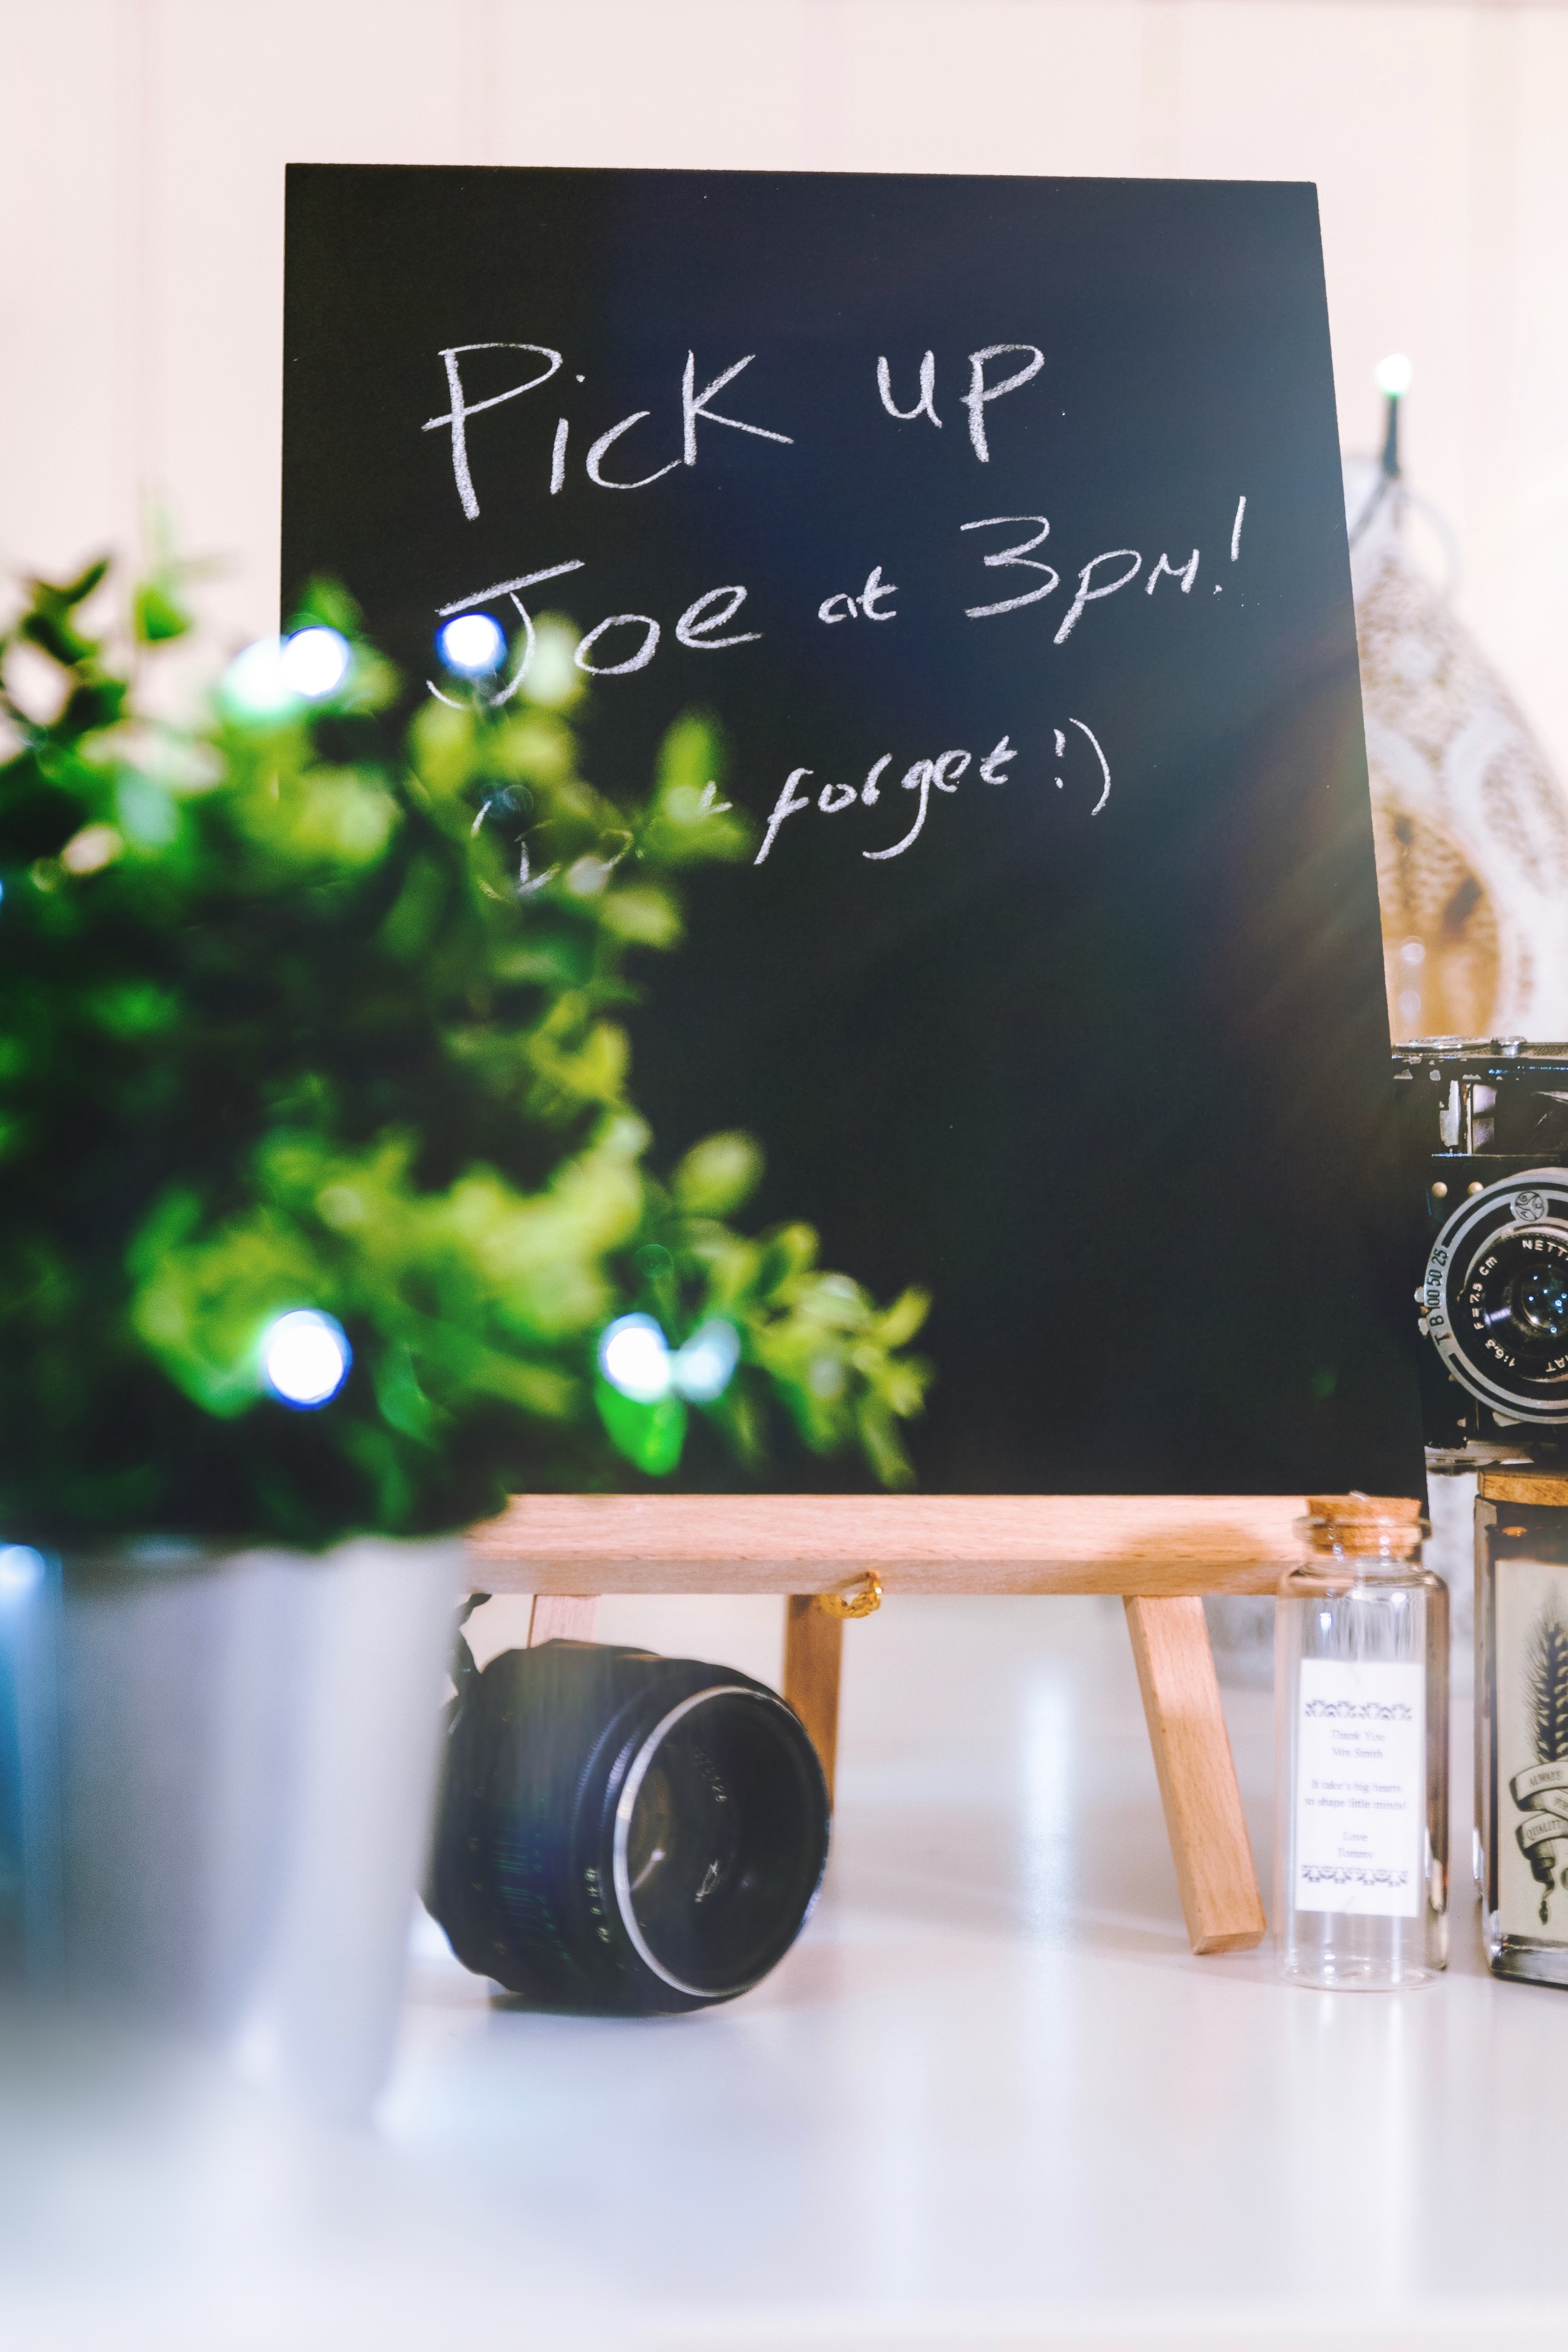 Pick up
Joe at 3pm!
forget!)
T B 100 50 25
NETT
F=7.5 cm
1:6.3
Thank You
Mrs Smith
It take's big hearts
to shape little minds!
Love
Tommy
ALWAYS
QUALITY